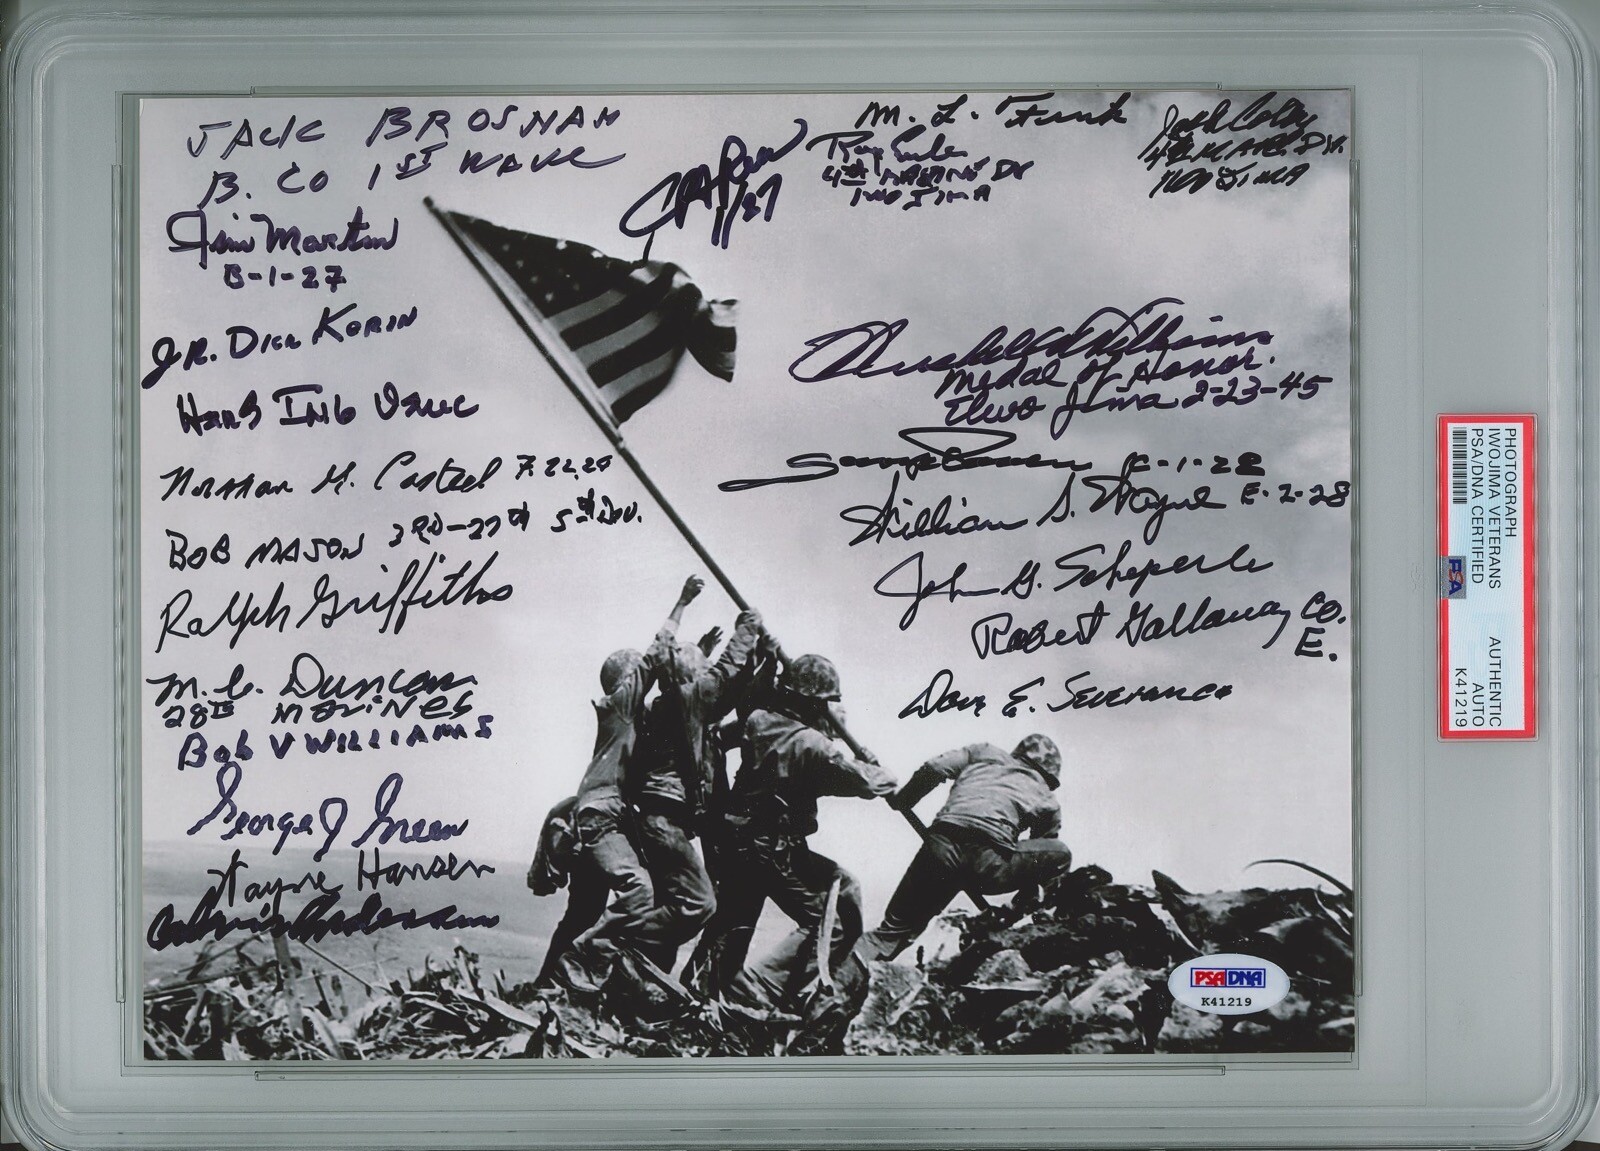 JACK BROSNAN
B. CO 1ST WAVE
Jim Martin
B-1-27
JR. Dick Korin
Hans
Norman M. Casteel
BOB MASON 3RD-27th 5th Div.
Ralph Griffiths
M. C. Duncan
28th Marines
Bob V Williams
George J Green
Wayne Hansen
Anderson
1/27
M. L. Funk
4th MARINE DIV
IWO JIMA
4th MARINE DIV.
IWO JIMA
Hershel W Williams
Medal of Honor.
Iwo Jima 2-23-45
C-1-28
William S. Wayne E-2-28
John G. Scheperle
Robert Gallaway Co.
E.
Dave E. Severance
PSA/DNA
K41219
PHOTOGRAPH
IWOJIMA VETERANS
PSA/DNA CERTIFIED
AUTHENTIC
AUTO
K41219
PSA